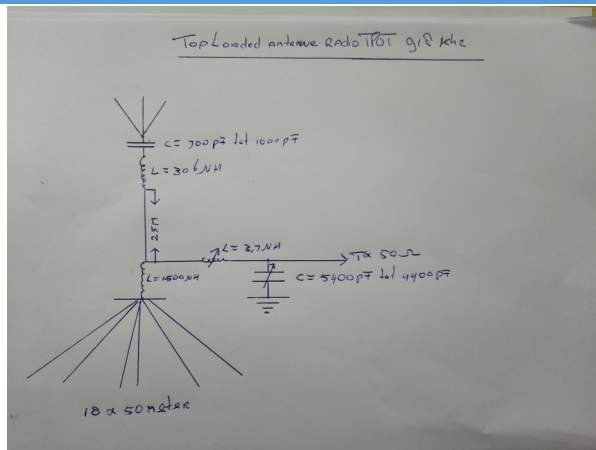 Top Loaded antenne Radio TPOT 918 khz
C = 700 pF tot 1000 pF
L = 306 µH
25M
L = 3,7 µH
TX 50 Ω
L = 1500 µH
C = 5400 pF tot 4400 pF
18 x 50 meter